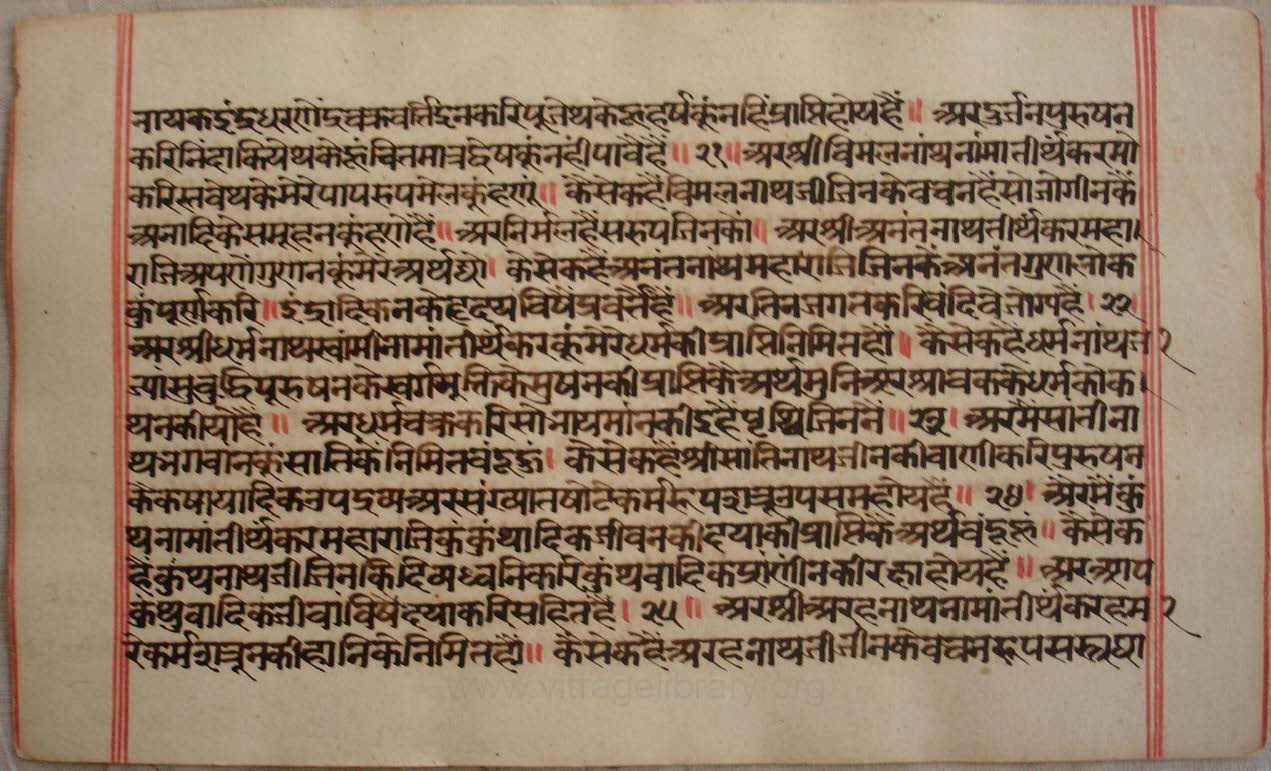 नायकइंद्रधरणेंद्रचक्रवर्तिइनकरिपूजेथकेहूहर्षकूंनहिंप्राप्तिहोयहैं ॥ अरदुर्जनपुरुषन
करिनिंदाकियेथकेहूंचितमात्रद्वेषकूंनहीपावैहैं ॥ २१ ॥ अरश्रीविमलनांथनांमांतीर्थंकरमो
करिस्तवेथकेमेरेपापरुपमेलकुंहणूं ॥ कैसेकहैंविमलनाथजीजिनकेवचनहैंसोजोगीनकैं
अनादिकेसमूहनकुंहणेंहैं ॥ अरनिर्मलहैंसरुपजिनकौं ॥ अरश्रीअनंतनाथतीर्थंकरमहा।
राजिअपणेंगुणानकूंमेरेअर्थद्यो । कैसेकहैंअनंतनांथमहाराजिजिनकेअनंतगुणलोक
कुंपूर्णकरि ॥ इंद्रादिकनकेहृदयविषैंप्रवर्त्तैहैं ॥ अरतिनजगतकरिवंदिवेजोग्यहैं । २२
अरश्रीधर्मनाथस्वांमीनामांतीर्थंकरकूंमेरेधर्मकीप्राप्तिनिमितहौं । कैसेकहैधर्मनांथज २
ज्यांसुबुद्धिपुरुषनकेस्वर्गमुक्तिकेसुषनकीप्राप्तिकेअर्थमुनिअरश्रावककेधर्मकोक।
थनकीयोहै ॥ अरधर्मचक्रकरिसोनायमांनकीइहैपृथ्विजिननैं ॥ २३ । अरमैंसांतीना
थभगवानकुंसांतिकेनिमितवंदूहूं । कैसेकहैंश्रीसांतिनाथजीनकीवाणीकरिपुरुषन
केकषायादिकउपद्रवअरसंख्यातषोटेकर्मरूपशत्रूउपसमहोयहैं ॥ २४ । औरमैंकुं
थनामांतीर्थंकरमहाराजिकुंकुंथादिकजीवनकीदयाकीप्राप्तिकेअर्थवंदूहूं ॥ कैसेक
हैंकुंथनाथजीजिनकिदिव्यध्वनिकरिकुंथवादिकप्रांणीनकीरक्षाहोयहैं ॥ अरआप
कुंथुवादिकजीवांविषैंदयाकरिसहितहैं । २५ ॥ अरश्रीअरहनाथनामांतीर्थंकरहम २
रेकर्मशत्रूनकीहानिकेनिमितहौं ॥ कैसेकहैंअरहनाथजीजीनकेवचनरूपसस्त्रधा